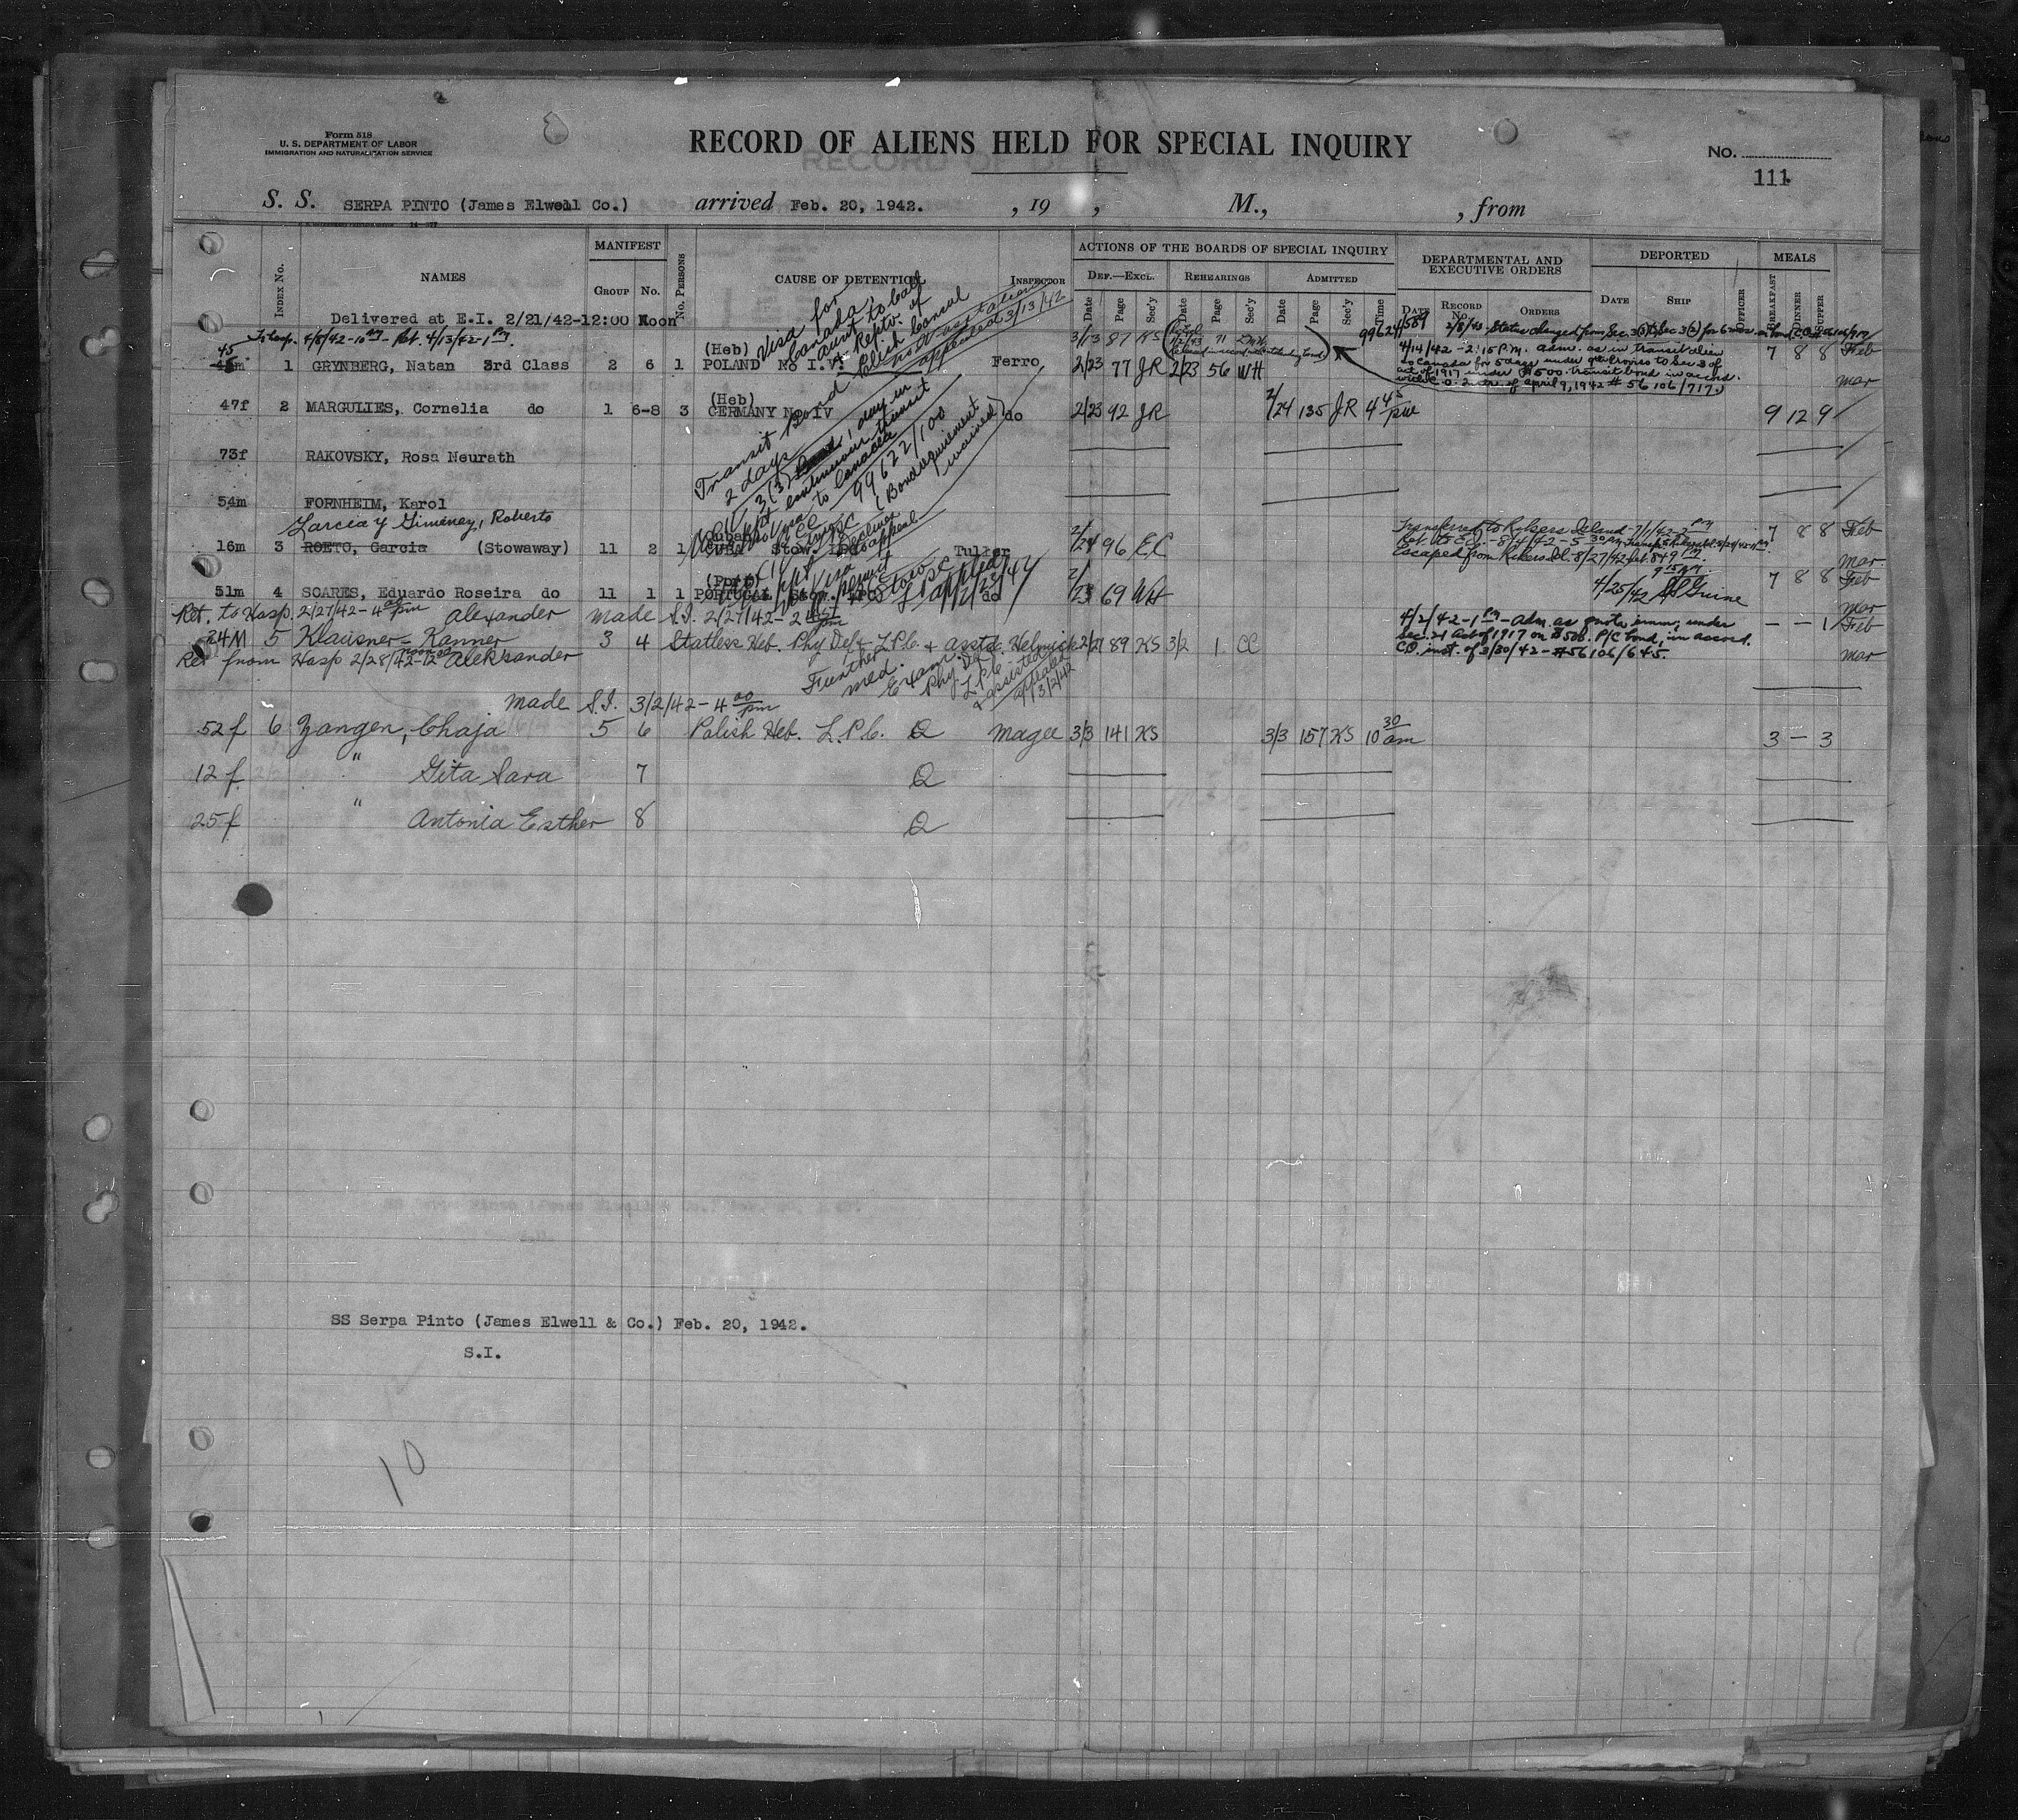 Form 518
U. S. DEPARTMENT OF LABOR
IMMIGRATION AND NATURALIZATION SERVICE
RECORD OF ALIENS HELD FOR SPECIAL INQUIRY
No.
111
S. S. SERPA PINTO (James Elwell Co.) arrived Feb. 20, 1942. , 19 , M., , from
INDEX No. NAMES MANIFEST GROUP No. No. PERSONS CAUSE OF DETENTION INSPECTOR
ACTIONS OF THE BOARDS OF SPECIAL INQUIRY
DEF.—EXCL. REHEARINGS ADMITTED
Date Page Sec'y Date Page Sec'y Date Page Sec'y Time
DEPARTMENTAL AND EXECUTIVE ORDERS
DATE RECORD No. ORDERS
DEPORTED
DATE SHIP OFFICER
MEALS
BREAKFAST DINNER SUPPER
Delivered at E.I. 2/21/42-12:00 Noon
To Hosp. 4/8/42-10 am - Ret. 4/13/42-1 pm.
3/13 87 KS
2/8/43 - Status changed from Sec. 3
45
1 GRYNBERG, Natan 3rd Class 2 6 1 (Heb) POLAND No I.V. Ferro 2/23 77 JR 2/23 56 WH
Visa for Canada;
aunt to call
Reptv. of
Polish Consul
appealed 3/13/42
4/14/42 - 2:15 P.M. adm. as in transit alien
to Canada for 5 days under 9th Proviso to Sec 3 of
act of 1917 under $500. transit bond in accord.
with C.O. instr. of April 9, 1942 # 56106/717.
7 8 8 Feb
Mar
47f 2 MARGULIES, Cornelia do 1 6-8 3 (Heb) GERMANY No IV do 2/23 92 JR 2/24 135 JR 4 45 pm 9 12 9
Transit Bond
2 days
3(3) 1 day in
continuous transit
to Canada
99622/100
(Bond requirement waived)
73f RAKOVSKY, Rosa Neurath
54m FORNHEIM, Karol
Garcia y Gimenez, Roberto
16m 3 ROETO, Garcia (Stowaway) 11 2 1 (Cuban) CUBA Stow. LPC Tuller 2/24 96 EC
Transferred to Rikers Island - 7/1/42 - 2 pm
Ret. to E.I. - 8/4/42 - 5 30 pm
Escaped from Rikers Isl. - 8/27/42
7 8 8 Feb
Mar
51m 4 SOARES, Eduardo Roseira do 11 1 1 (Port) PORTUGAL Stow. LPC do 2/23 69 WH
4/25/42
7 8 8 Feb
Mar
Ret. to Hosp. 2/27/42 - 4 00 pm Alexander made S.I. 2/27/42 - 2 45 pm
24M 5 Klausner-Kanner 3 4 Statless Heb. Phy Def - L.P.C. + asstd. Helmick 2/27 89 KS 3/2 1 CC
Ret from Hosp 2/28/42-12 noon Aleksander
Further
med. Exam.
Phy. Def
L.P.C.
+ assisted
appealed
3/2/42
4/2/42 - 1 pm - adm. as quota immi, under
Sec. 21 Act of 1917 on $500. P/C bond, in accord.
CO. inst. of 3/30/42 - #56106/645.
– – 1 Feb
Mar
made S.I. 3/2/42 - 4 00 pm
52f 6 Zangen, Chaja 5 6 Polish Heb. L.P.C. Q Magee 3/3 141 KS 3/3 157 KS 10 30 am 3 – 3
12f " Gita Sara 7 Q
25f " Antonia Esther 8 Q
SS Serpa Pinto (James Elwell & Co.) Feb. 20, 1942.
S.I.
10